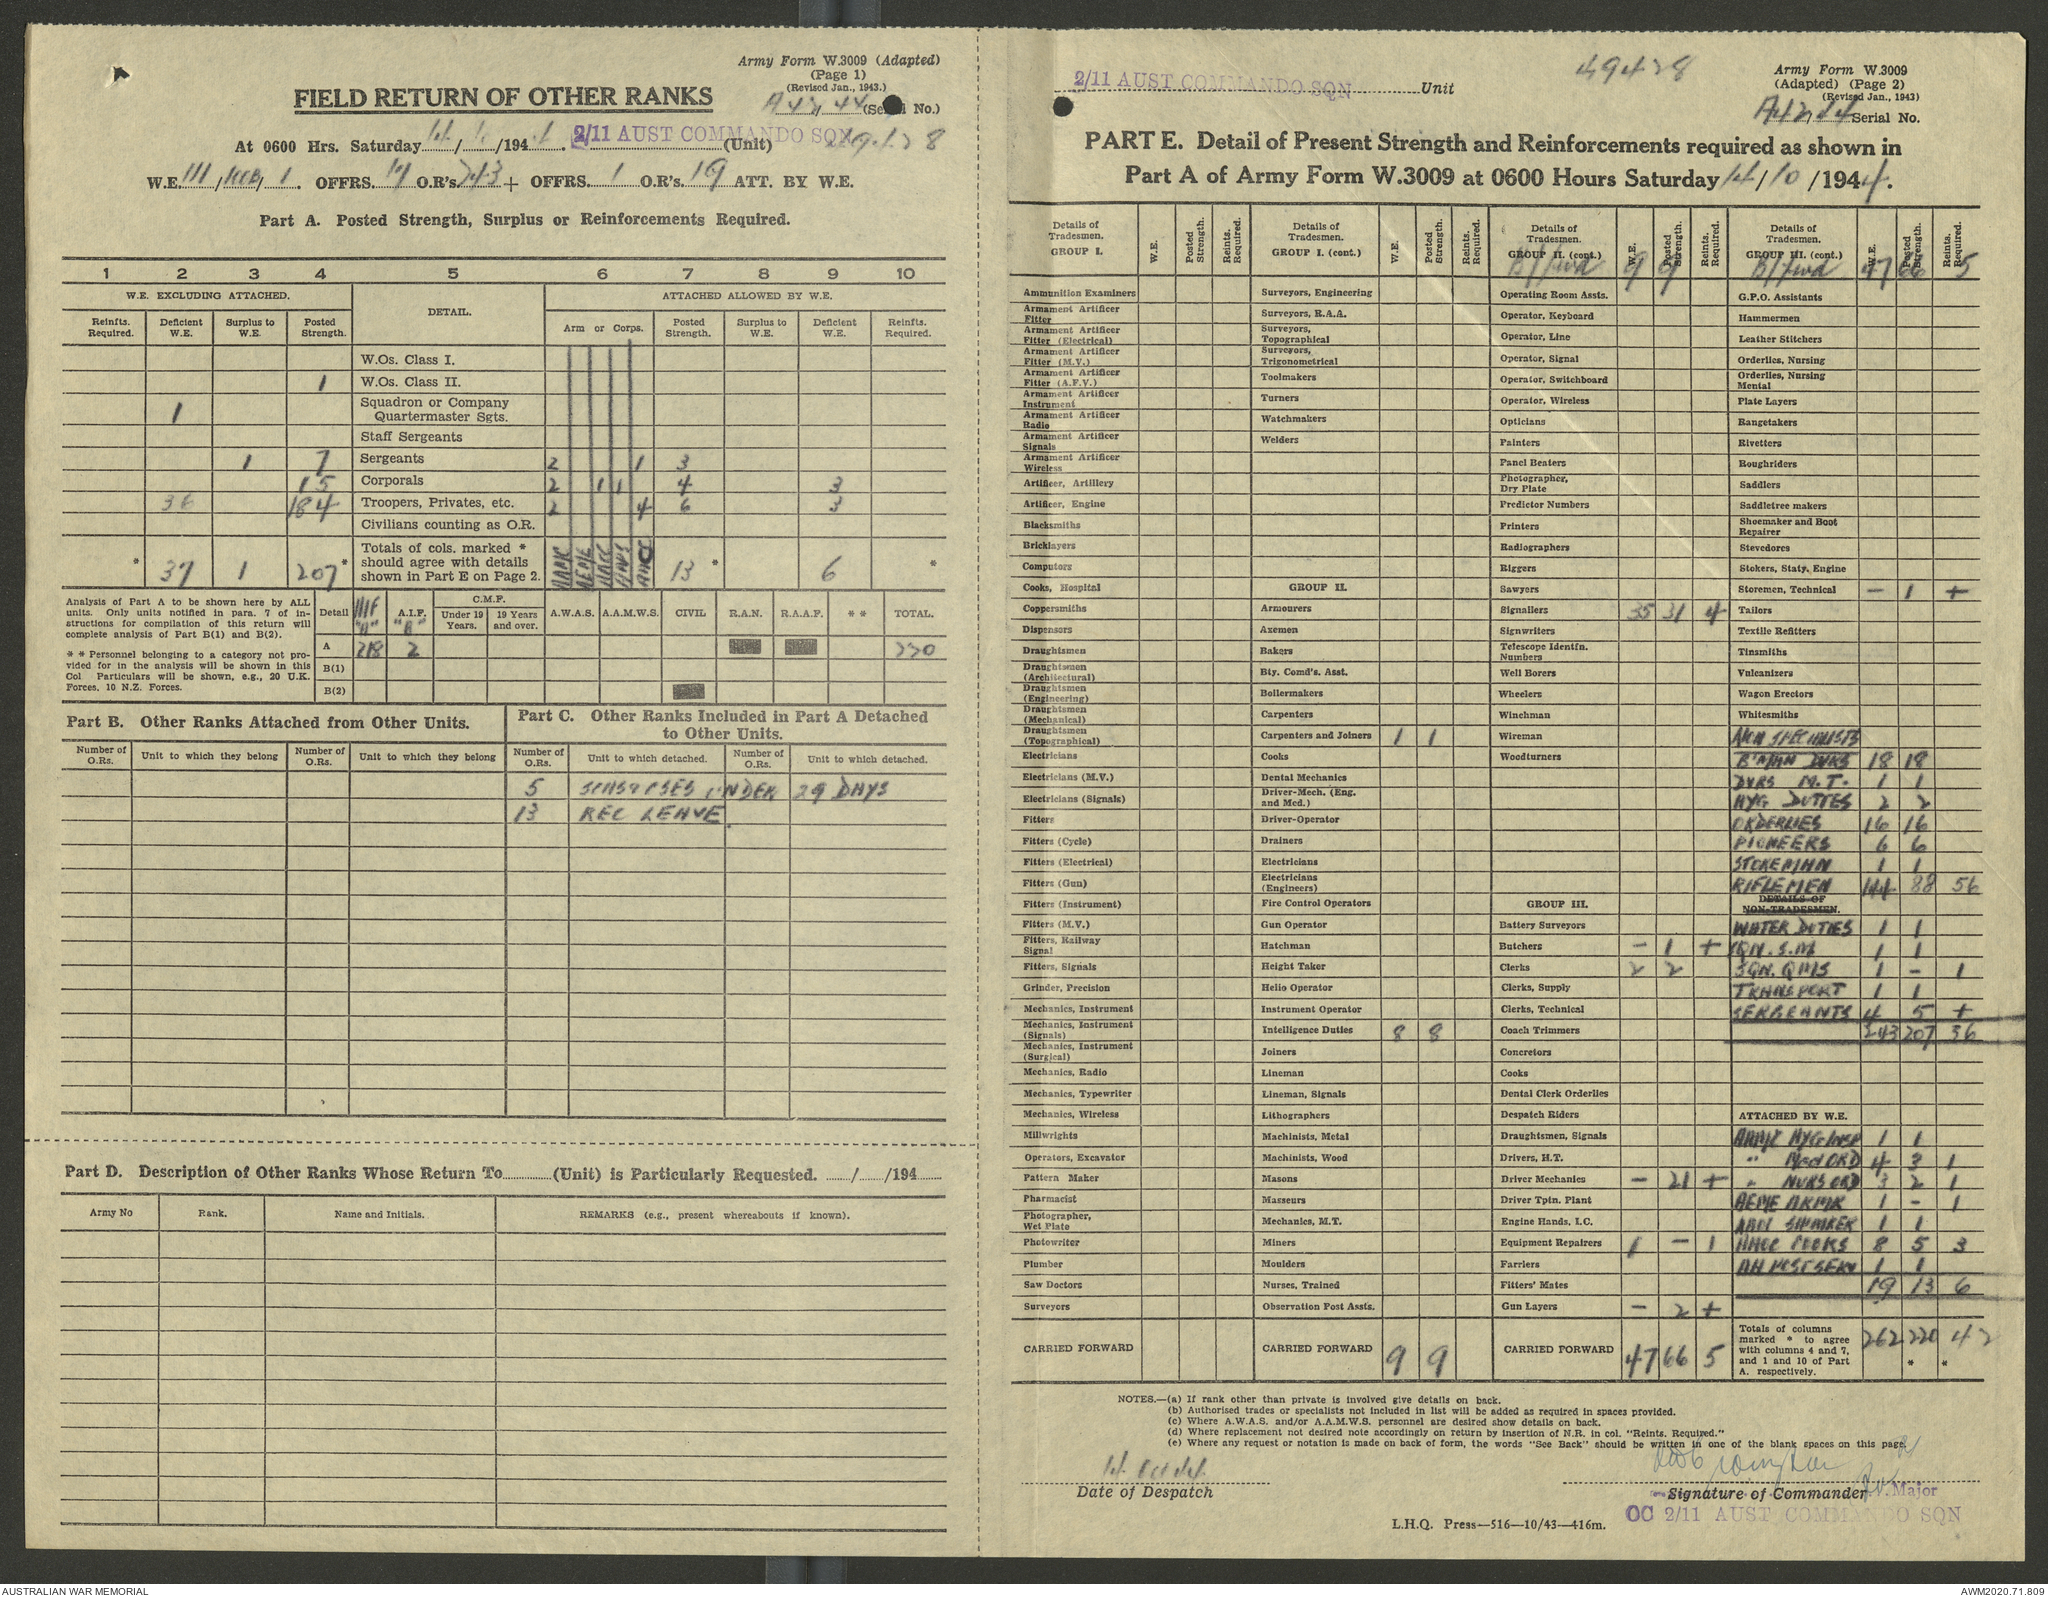 Army Form W.3009 (Adapted)
(Page 1)
(Revised Jan., 1943.)
FIELD RETURN OF OTHER RANKS
A42/44 (Serial No.)
At 0600 Hrs. Saturday 14/ /194 . 2/11 AUST COMMANDO SQN (Unit)
W.E. III/ /1. OFFRS. 17 O.R's 243 + OFFRS. 1 O.R's. 19 ATT. BY W.E.
Part A. Posted Strength, Surplus or Reinforcements Required.
1 2 3 4 5 6 7 8 9 10
W.E. EXCLUDING ATTACHED. DETAIL. ATTACHED ALLOWED BY W.E.
Reinfts. Required. Deficient W.E. Surplus to W.E. Posted Strength. Arm or Corps. Posted Strength. Surplus to W.E. Deficient W.E. Reinfts. Required.
W.Os. Class I.
1 W.Os. Class II.
1 Squadron or Company Quartermaster Sgts.
Staff Sergeants
1 7 Sergeants 2 1 3
15 Corporals 2 1 1 4 3
36 184 Troopers, Privates, etc. 2 4 6 3
Civilians counting as O.R.
* 37 1 207 * Totals of cols. marked * should agree with details shown in Part E on Page 2. AAMC AEME AACC 13 * 6 *
Analysis of Part A to be shown here by ALL units. Only units notified in para. 7 of instructions for compilation of this return will complete analysis of Part B(1) and B(2).
* * Personnel belonging to a category not provided for in the analysis will be shown in this Col Particulars will be shown, e.g., 20 U.K. Forces, 10 N.Z. Forces.
Detail AIF "A" A.I.F. "B" C.M.F. Under 19 Years. 19 Years and over. A.W.A.S. A.A.M.W.S. CIVIL R.A.N. R.A.A.F. * * TOTAL.
A 218 2 220
B(1)
B(2)
Part B. Other Ranks Attached from Other Units.
Number of O.Rs. Unit to which they belong Number of O.Rs. Unit to which they belong
Part C. Other Ranks Included in Part A Detached to Other Units.
Number of O.Rs. Unit to which detached. Number of O.Rs. Unit to which detached.
5 UNDER 29 DAYS
13 REC LEAVE.
Part D. Description of Other Ranks Whose Return To (Unit) is Particularly Requested. / /194
Army No Rank. Name and Initials. REMARKS (e.g., present whereabouts if known).
2/11 AUST COMMANDO SQN Unit
49428
Army Form W.3009
(Adapted) (Page 2)
(Revised Jan., 1943)
A42/44 Serial No.
PART E. Detail of Present Strength and Reinforcements required as shown in
Part A of Army Form W.3009 at 0600 Hours Saturday 14/10/1944.
Details of Tradesmen. GROUP I. W.E. Posted Strength. Reints. Required.
Ammunition Examiners
Armament Artificer Fitter
Armament Artificer Fitter (Electrical)
Armament Artificer Fitter (M.V.)
Armament Artificer Fitter (A.F.V.)
Armament Artificer Instrument
Armament Artificer Radio
Armament Artificer Signals
Armament Artificer Wireless
Artificer, Artillery
Artificer, Engine
Blacksmiths
Bricklayers
Computors
Cooks, Hospital
Coppersmiths
Dispensers
Draughtsmen
Draughtsmen (Architectural)
Draughtsmen (Engineering)
Draughtsmen (Mechanical)
Draughtsmen (Topographical)
Electricians
Electricians (M.V.)
Electricians (Signals)
Fitters
Fitters (Cycle)
Fitters (Electrical)
Fitters (Gun)
Fitters (Instrument)
Fitters (M.V.)
Fitters, Railway Signal
Fitters, Signals
Grinder, Precision
Mechanics, Instrument
Mechanics, Instrument (Signals)
Mechanics, Instrument (Surgical)
Mechanics, Radio
Mechanics, Typewriter
Mechanics, Wireless
Millwrights
Operators, Excavator
Pattern Maker
Pharmacist
Photographer, Wet Plate
Photowriter
Plumber
Saw Doctors
Surveyors
CARRIED FORWARD
Details of Tradesmen. GROUP I. (cont.) W.E. Posted Strength. Reints. Required.
Surveyors, Engineering
Surveyors, R.A.A.
Surveyors, Topographical
Surveyors, Trigonometrical
Toolmakers
Turners
Watchmakers
Welders
GROUP II.
Armourers
Axemen
Bakers
Bty. Comd's. Asst.
Boilermakers
Carpenters
Carpenters and Joiners 1 1
Cooks
Dental Mechanics
Driver-Mech. (Eng. and Med.)
Driver-Operator
Drainers
Electricians
Electricians (Engineers)
Fire Control Operators
Gun Operator
Hatchman
Height Taker
Helio Operator
Instrument Operator
Intelligence Duties 8 8
Joiners
Lineman
Lineman, Signals
Lithographers
Machinists, Metal
Machinists, Wood
Masons
Masseurs
Mechanics, M.T.
Miners
Moulders
Nurses, Trained
Observation Post Assts.
CARRIED FORWARD 9 9
Details of Tradesmen. GROUP II. (cont.) W.E. Posted Strength. Reints. Required.
B/fwd 9 9
Operating Room Assts.
Operator, Keyboard
Operator, Line
Operator, Signal
Operator, Switchboard
Operator, Wireless
Opticians
Painters
Panel Beaters
Photographer, Dry Plate
Predictor Numbers
Printers
Radiographers
Riggers
Sawyers
Signallers 35 31 4
Signwriters
Telescope Identfn. Numbers
Well Borers
Wheelers
Winchman
Wireman
Woodturners
GROUP III.
Battery Surveyors
Butchers – 1 +
Clerks 2 2
Clerks, Supply
Clerks, Technical
Coach Trimmers
Concretors
Cooks
Dental Clerk Orderlies
Despatch Riders
Draughtsmen, Signals
Drivers, H.T.
Driver Mechanics – 21 +
Driver Tptn. Plant
Engine Hands, I.C.
Equipment Repairers 1 – 1
Farriers
Fitters' Mates
Gun Layers – 2 +
CARRIED FORWARD 47 66 5
Details of Tradesmen. GROUP III. (cont.) W.E. Posted Strength. Reints. Required.
B/fwd 47 66 5
G.P.O. Assistants
Hammermen
Leather Stitchers
Orderlies, Nursing
Orderlies, Nursing Mental
Plate Layers
Rangetakers
Rivetters
Roughriders
Saddlers
Saddletree makers
Shoemaker and Boot Repairer
Stevedores
Stokers, Staty. Engine
Storemen, Technical – 1 +
Tailors
Textile Refitters
Tinsmiths
Vulcanizers
Wagon Erectors
Whitesmiths
NON SPECIALISTS
B'MAN DVRS 18 18
DVRS M.T. 1 1
HYG DUTIES 2 2
ORDERLIES 16 16
PIONEERS 6 6
STOREMAN 1 1
RIFLEMEN 144 88 56
DETAILS OF NON-TRADESMEN.
WATER DUTIES 1 1
SQN. S.M 1 1
SQN. QMS 1 – 1
TRANSPORT 1 1
SERGEANTS 4 5 +
243 207 36
ATTACHED BY W.E.
AAMC HYG INSP 1 1
" Med ORD 4 3 1
" NURS ORD 3 2 1
AEME ARMR 1 – 1
1 1
AACC COOKS 8 5 3
AA POST SERV 1 1
19 13 6
Totals of columns marked * to agree with columns 4 and 7, and 1 and 10 of Part A. respectively. 262 220 * 42 *
NOTES.—(a) If rank other than private is involved give details on back.
(b) Authorised trades or specialists not included in list will be added as required in spaces provided.
(c) Where A.W.A.S. and/or A.A.M.W.S. personnel are desired show details on back.
(d) Where replacement not desired note accordingly on return by insertion of N.R. in col. "Reints. Required."
(e) Where any request or notation is made on back of form, the words "See Back" should be written in one of the blank spaces on this page.
14 Oct 44
Date of Despatch
Signature of Commander Major
OC 2/11 AUST COMMANDO SQN
L.H.Q. Press—516—10/43—416m.
AUSTRALIAN WAR MEMORIAL
AWM2020.71.809